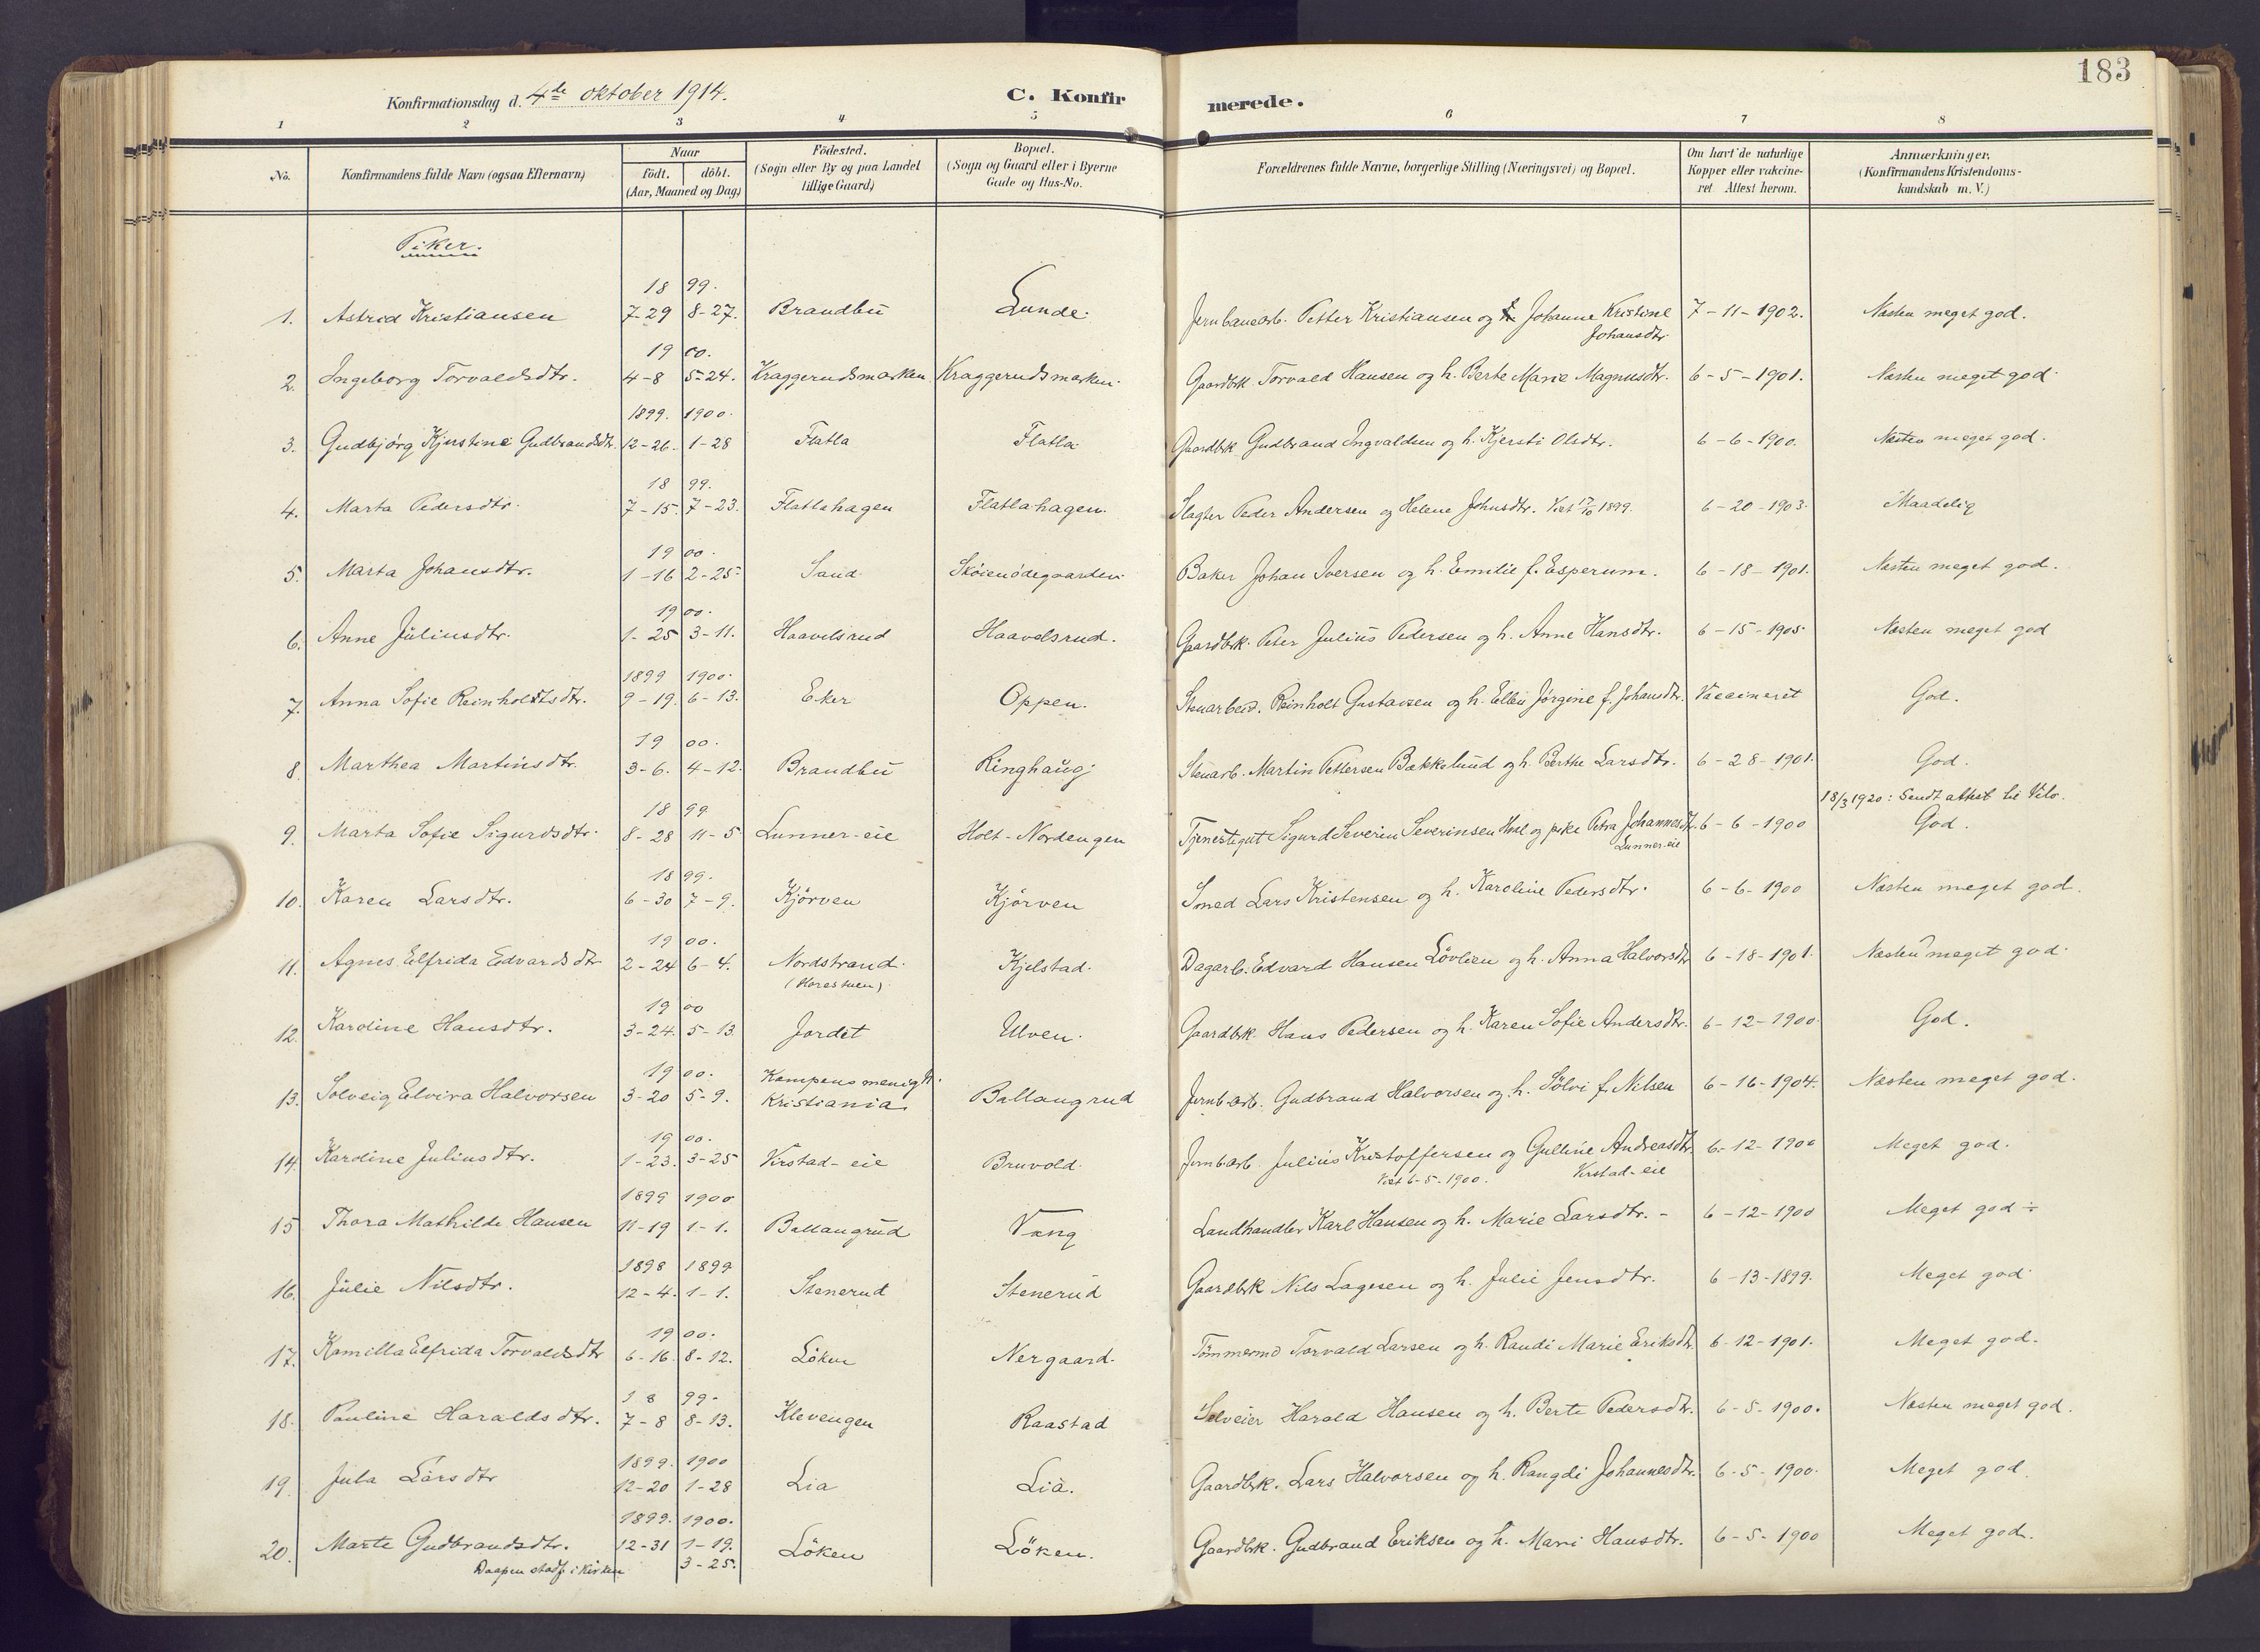 183
Konfirmationsdag d. 4de oktober 1914.
C. Konfirmerede.
1 2 3 4 5 6 7 8
No. Konfirmandens fulde Navn (ogsaa Efternavn) Naar født. døbt. (Aar, Maaned og Dag) Fødested. (Sogn eller By og paa Landet tillige Gaard) Bopæl. (Sogn og Gaard eller i Byerne Gade og Hus-No. Forældrenes fulde Navne, borgerlige Stilling (Næringsvei) og Bopæl. Om havt de naturlige Kopper eller vakcineret Attest herom. Anmærkninger. (Konfirmandens Kristendomskundskab m. V.)
Piker.
18 99.
1. Astrid Kristiansen 7-29 8-27. Brandbu Lunde. Jernbanearb. Petter Kristiansen og h. Johanne Kristine Johansdtr. 7-11-1902. Næsten meget god.
19 00.
2. Ingeborg Torvaldsdtr. 4-8 5-24. Kraggerudsmarken Kraggerudsmarken. Gaardbrk. Torvald Hansen og h. Berte Marie Magnusdtr. 6-5-1901. Næsten meget god.
1899. 1900.
3. Gudbjørg Kjerstine Gudbrandsdtr. 12-26. 1-28 Flatla Flatla Gaardbrk. Gudbrand Ingvaldsen og h. Kjersti Olsdtr. 6-6-1900. Næsten meget god.
18 99.
4. Marta Pedersdtr. 7-15. 7-23. Flatlahagen Flatlahagen. Slagter Peder Andersen og Helene Johnsdtr. Viet 17/10 1899. 6-20-1903. Maadelig
19 00.
5. Marta Johansdtr. 1-16 2-25. Sand. Skøienødegaarden. Baker Johan Iversen og h. Emilie f. Esperum. 6-18-1901. Næsten meget god.
19 00.
6. Anne Juliusdtr. 1-25 3-11. Haavelsrud Haavelsrud. Gaardbrk. Peter Julius Pedersen og h. Anne Hansdtr. 6-15-1905. Næsten meget god
1899 1900.
7. Anna Sofie Reinholdtsdtr. 9-19. 6-13. Eker Oppen. Stenarbeid. Reinholt Gustavsen og h. Ellen Jørgine f. Johansdtr. Vaccineret God.
19 00.
8. Marthea Martinsdtr. 3-6. 4-12. Brandbu Ringhaug Stenarb. Martin Pettersen Bækkelund og h. Berthe Larsdtr. 6-28-1901. God.
18/3 1920: Sendt attest til Vilo.
18 99
9. Marta Sofie Sigurdsdtr. 8-28 11-5 Lunner-eie Holt-Nordengen Tjenestegut Sigurd Severin Severinsen Hval og pike Petra Johannesdtr. Lunner-eie 6-6-1900 God.
18 99.
10. Karen Larsdtr. 6-30 7-9. Kjørven Kjørven Smed Lars Kristensen og h. Karoline Pedersdtr. 6-6-1900 Næsten meget god.
19 00.
11. Agnes Elfrida Edvardsdtr 2-24 6-4. Nordstrand. Kjelstad. Dagarb. Edvard Hansen Løvlien og h. Anna Halvorsdtr 6-18-1901. Næsten meget god.
19 00
12. Karoline Hansdtr. 3-24. 5-13. Jordet Ulven. Gaardbrk. Hans Pedersen og h. Karen Sofie Andersdtr. 6-12-1900. God.
19 00.
13. Solveig Elvira Halvorsen 3-20 5-9. Kampens menigh. Kristiania. Ballangrud Jernb.arb. Gudbrand Halvorsen og h. Sølvi f. Nilsen 6-16-1904. Næsten meget god.
19 00.
14. Karoline Juliusdtr. 1-23. 3-25 Virstad-eie Bruvold. Jernb.arb. Julius Kristoffersen og Gulline Andreasdtr. Viet 6-5-1900. Virstad-eie 6-12-1900 Meget god.
1899 1900
15. Thora Mathilde Hansen 11-19 1-1. Ballangrud Vang Landhandler Karl Hansen og h. Marie Larsdtr. - 6-12-1900 Meget god ÷
1898 1899
16. Julie Nilsdtr. 12-4. 1-1. Stenerud Stenerud Gaardbrk Nils Lagesen og h. Julie Jensdtr. 6-13-1899. Meget god
19 00.
17. Kamilla Elfrida Torvaldsdtr 6-16. 8-12. Løken Nergaard. Tømmermd Torvald Larsen og h. Randi Marie Eriksdtr. 6-12-1901. Meget god.
18 99.
18. Pauline Haraldsdtr. 7-8 8-13. Klevengen Raastad Selveier Harald Hansen og h. Berte Pedersdtr. 6-5-1900. Næsten meget god.
1899. 1900
19. Jula Larsdtr 12-20 1-28 Lia Lia. Gaardbrk. Lars Halvorsen og h. Rangdi Johannesdtr. 6-5-1900. Meget god.
1899. 1900.
20. Marte Gudbrandsdtr. 12-31 1-19. Løken Løken. Gaardbrk. Gudbrand Eriksen og h. Mari Hansdtr. 6-5-1900 Meget god.
Daapen stadf. i kirken 3-25.